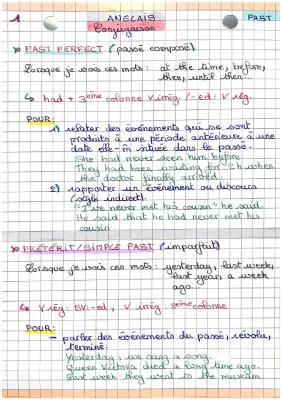 1
ANGLAIS
PAST
Conjugaison
PAST PERFECT (passé composé)
Lorsque je vois ces mots : at the time, before,
then, until then...
↳ had + 3ème colonne V irrég. / -ed : V rég.
POUR :
1) relater des événements qui se sont
produits à une période antérieure à une
date elle-m̂ située dans le passé.
She had never seen him before.
They had been waiting for 2h when
the doctor finally arrived.
2) rapporter un événement ou discours
(style indirect).
"I've never met his cousin" he said.
He said that he had never met his
cousin
PRÉTÉRIT/SIMPLE PAST (imparfait)
Lorsque je vois ces mots : yesterday, last week,
last year, a week
ago...
↳ V rég : BV: -ed, V irrég colonne
POUR :
- parler des événements du passé, révolu,
terminé.
Yesterday, we sang a song.
Queen Victoria died a long time ago.
Last week they went to the museum